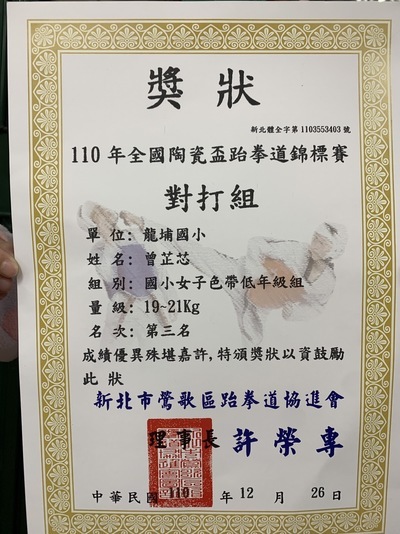 獎狀
新北體全字第1103553403號
110年全國陶瓷盃跆拳道錦標賽
對打組
單位: 龍埔國小
姓名: 曾芷芯
組別: 國小女子色帶低年級組
量級: 19-21Kg
名次: 第三名
成績優異殊堪嘉許,特頒獎狀以資鼓勵
此狀
新北市鶯歌區跆拳道協進會
理事長 許榮專
中華民國 110 年 12 月 26 日